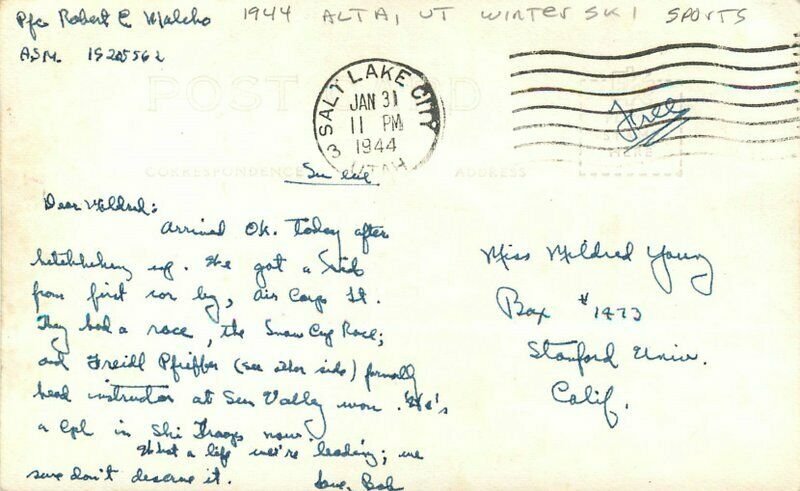 Pfc Robert E Malcho
1944 ALTA, UT WINTER SKI SPORTS
ASN. 19205562
POST CARD
SALT LAKE CITY
JAN 31
11 PM
1944
3 UTAH
Free
HERE
CORRESPONDENCE
ADDRESS
Sun eve
Dear Mildred:
Arrived OK. today after
hitchhiking up. We got a ride
from first car by, Air Corps Lt.
They had a race, the Snow Cup Race;
and Freidl Pfeiffer (see other side) formally
head instructor at Sun Valley won. He's
a Cpl in Ski Troops now.
What a life we're leading; we
sure don't deserve it. Love, Bob
Miss Mildred Young
Box #1473
Stanford Univ.
Calif.